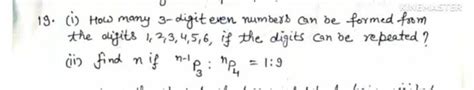 KINEMASTER
19. (i) How many 3-digit even numbers can be formed from
the digits 1,2,3,4,5,6, if the digits can be repeated?
(ii) find n if ⁿ⁻¹P₃ : ⁿP₄ = 1:9